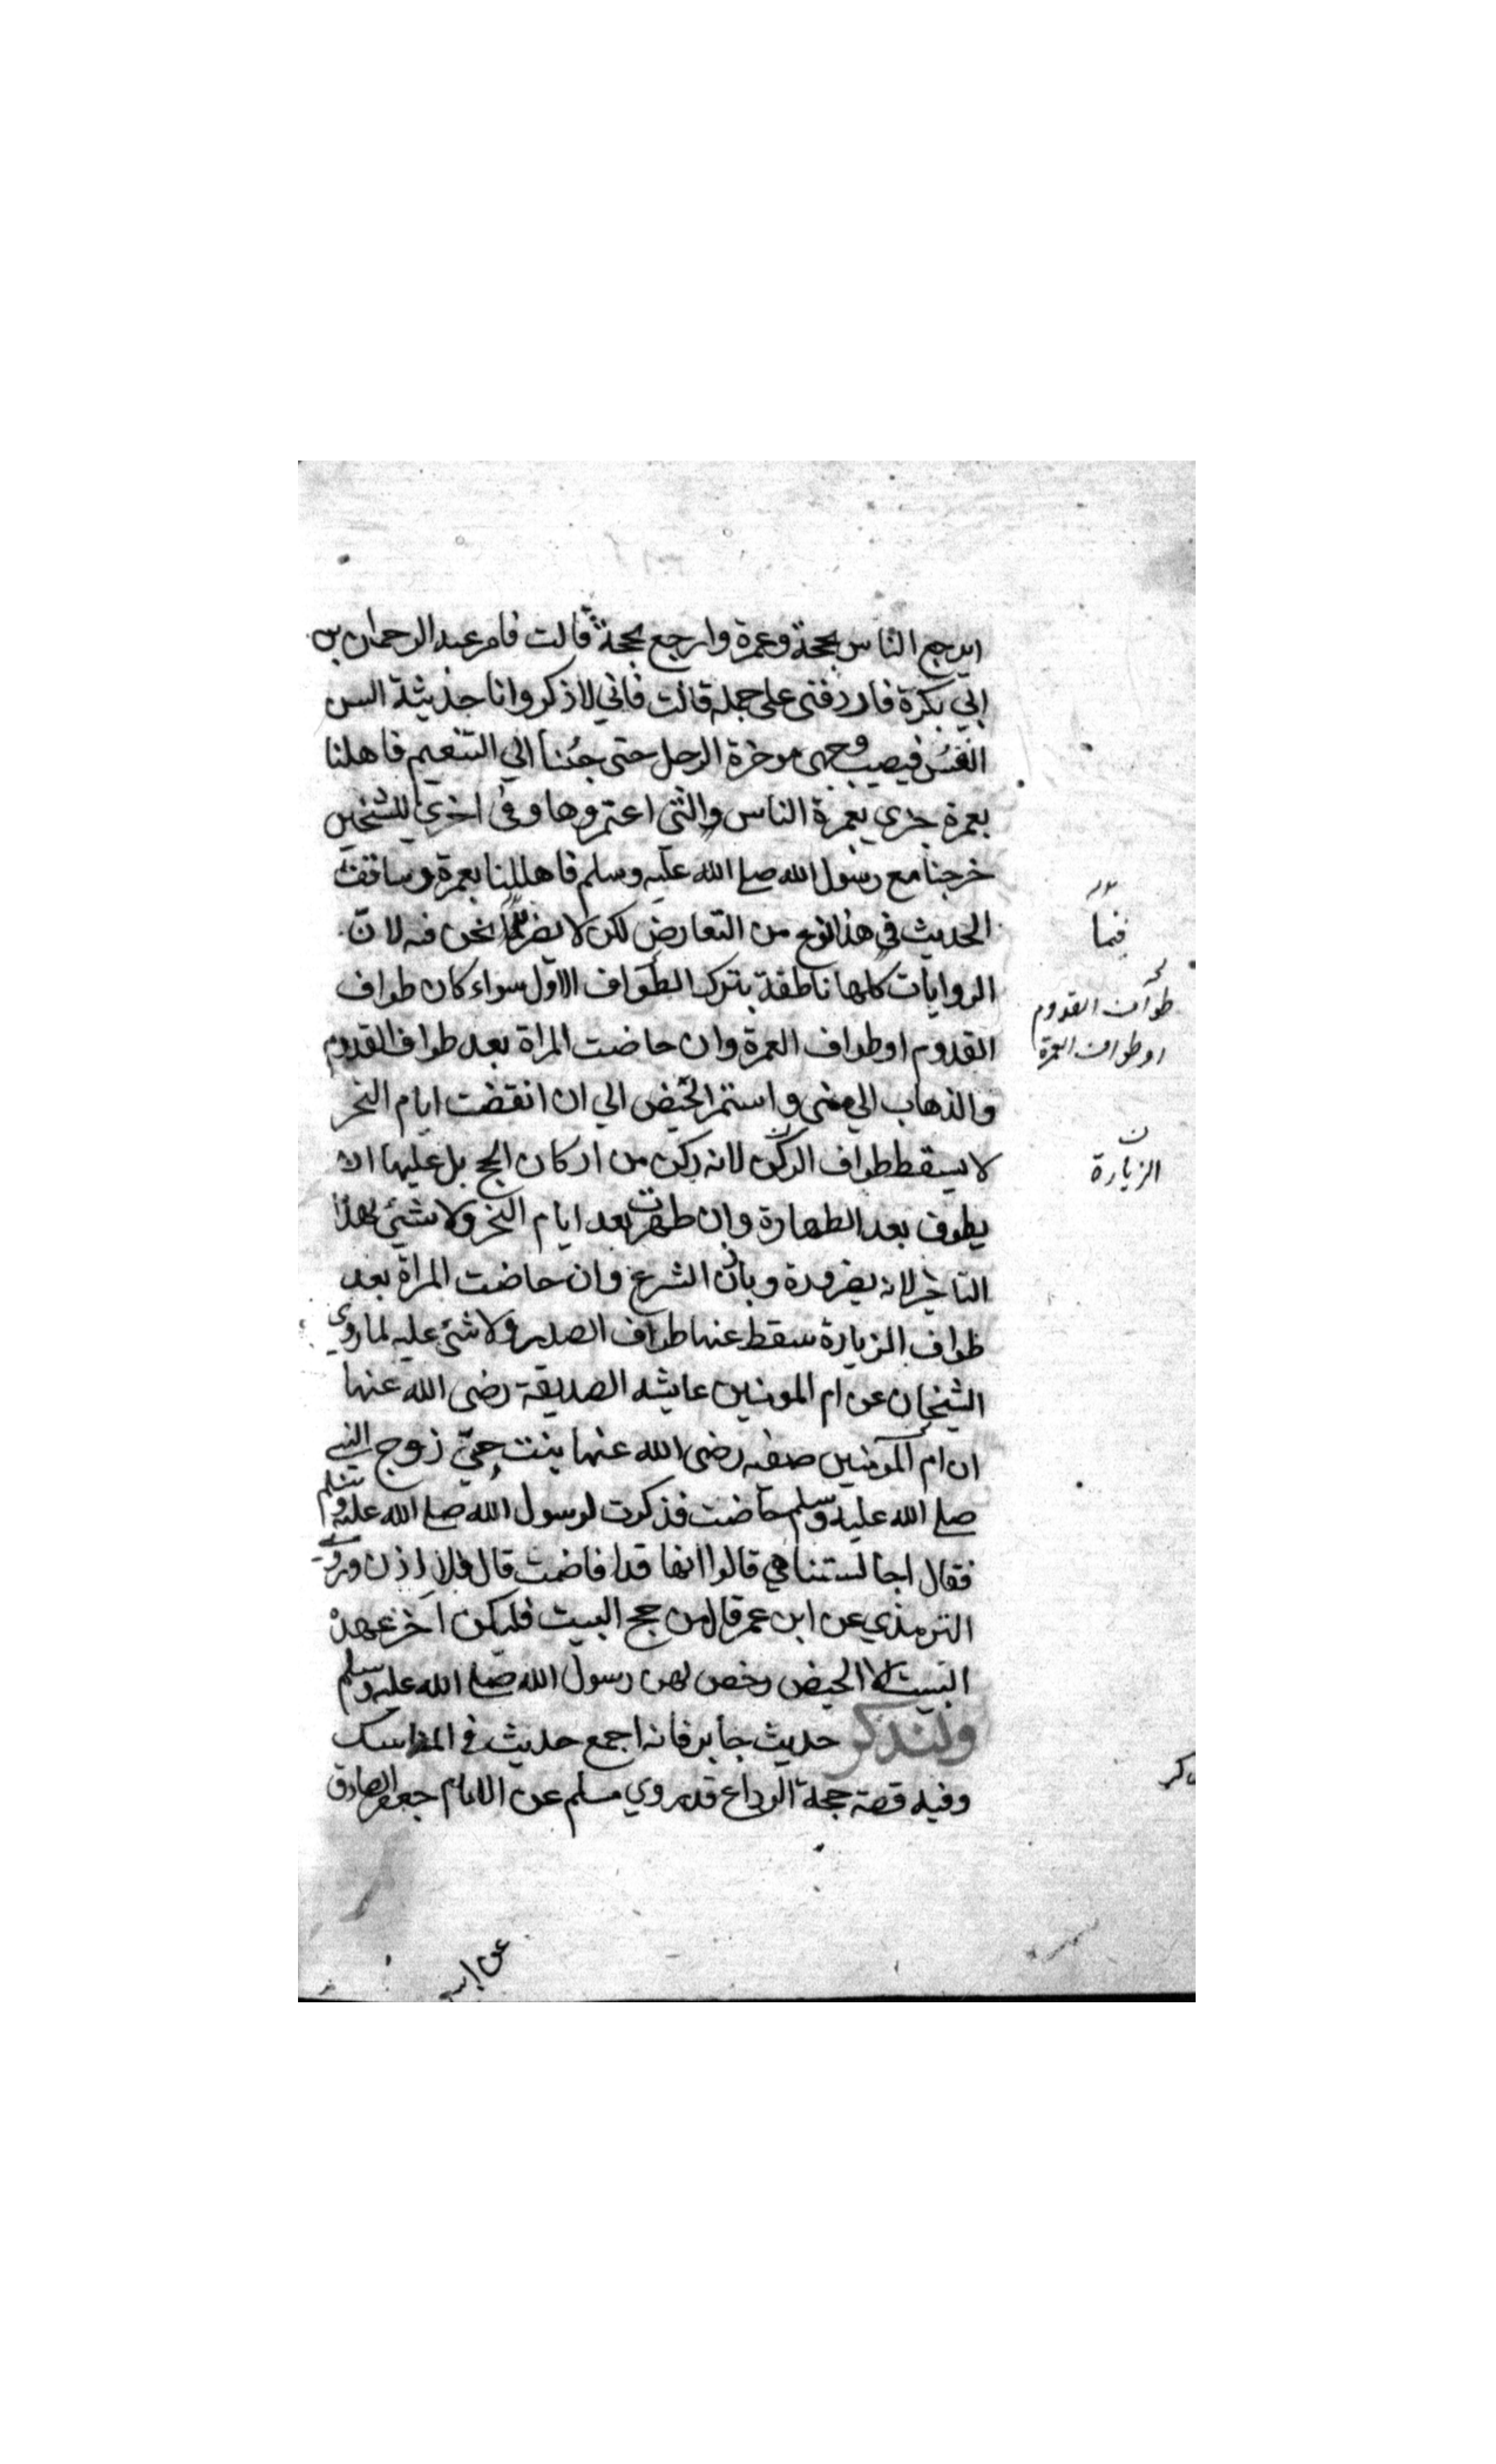 ايرجع الناس بحجة وعمرة وارجع بحجة قالت فامر عبد الرحمان بن
ابي بكرة فاردفني على جمله قالت فاني لاذكر وانا حديثة السن
انعس فيصيب وجهي موخرة الرحل حتى جئنا الي التنعيم فاهلنا
بعمرة جزي بعمرة الناس والتي اعتمروها وفي اخري للشيخين
خرجنا مع رسول الله صلے الله عليه وسلم فاهللنا بعمرة وساقت
الحديث في هذا نوع من التعارض لكن لا يضر لما نحن فيه لان
الروايات كلها ناطقة بترك الطواف الاول سواء كان طواف
القدوم او طواف العمرة وان حاضت المراة بعد طواف القدوم
والذهاب الي منى واستمر الحيض الي ان انقضت ايام النحر
لا يسقط طواف الركن لانه ركن من اركان الحج بل عليها ان
يطوف بعد الطهارة وان طهرت بعد ايام النحر ولا شئي لهذا
التاخير لانه بضرورة وباذن الشرع وان حاضت المراة بعد
طواف الزيارة سقط عنها طواف الصدر ولا شئ عليه لما روي
الشيخان عن ام المومنين عايشه الصديقة رضى الله عنها
ان ام المومنين صفيه رضى الله عنها بنت حيي زوج النبي
صلے الله عليه وسلم حاضت فذكرت لرسول الله صلے الله عليه وسلم
فقال احابستنا هي قالوا انها قد افاضت قال فلا اذن وروي
الترمذي عن ابن عمر قال من حج البيت فليكن آخر عهده
البيت الا الحيض رخص لهن رسول الله صلے الله عليه وسلم
ولنذكر حديث جابر فانه اجمع حديث في المناسك
وفيه قصة حجة الوداع قد روي مسلم عن الامام جعفر الصادق
فيما
طواف القدوم
او طواف العمرة
ن
الزيارة
عن ابيه